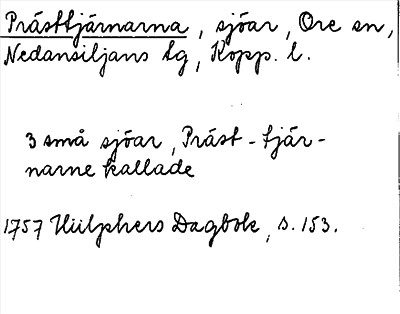 Prästtjärnarna, sjöar, Ore sn,
Nedansiljans tg, Kopp. l.
3 små sjöar, Präst-tjär-
narne kallade
1757 Hülphers Dagbok, s. 153.